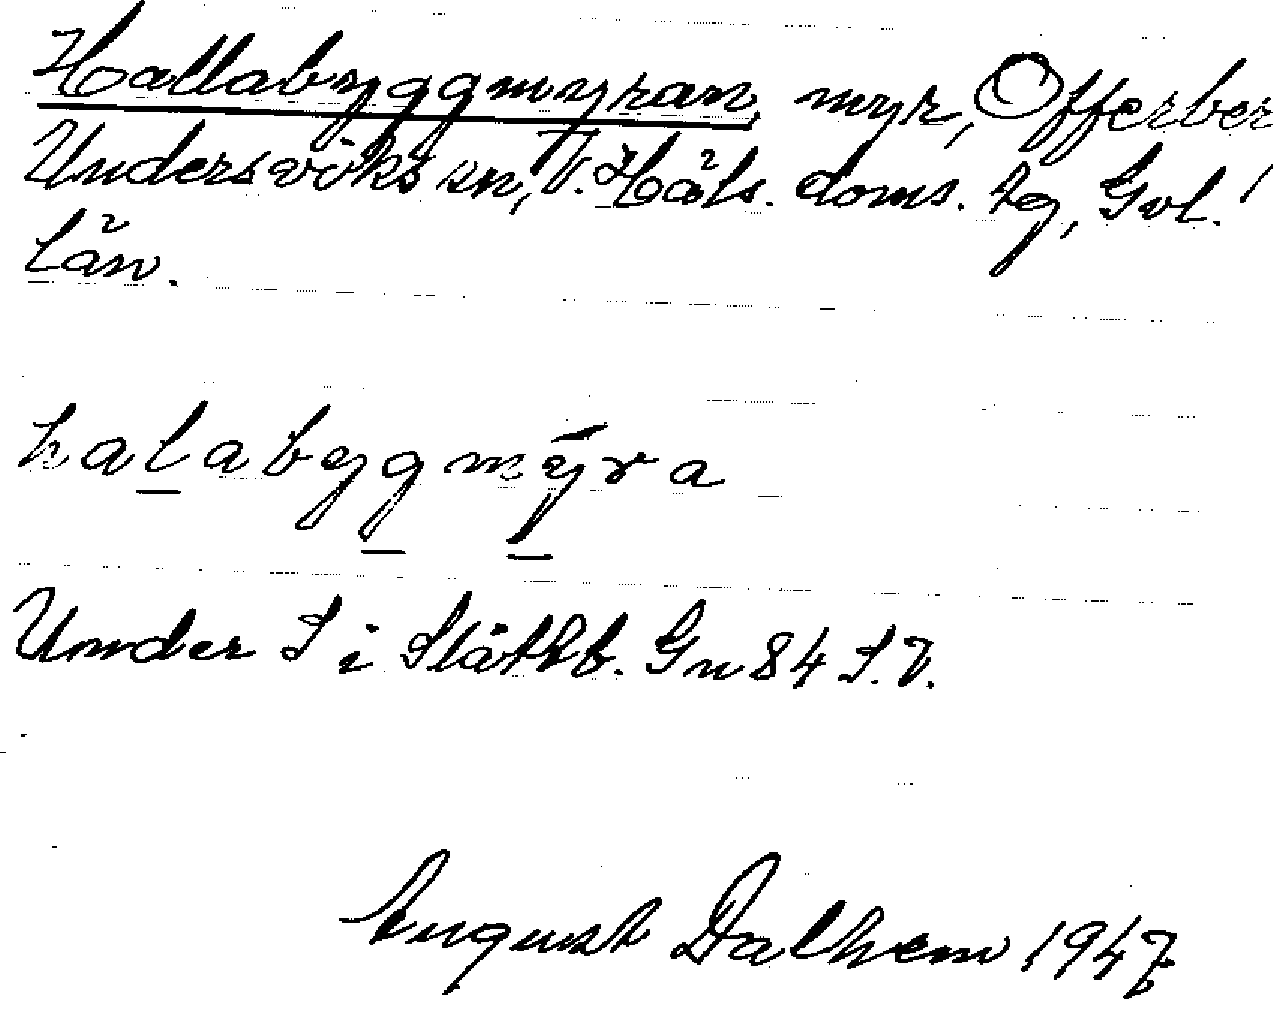 Hallabyggmyran, myr, Offerber
Undersviks sn, V. Häls. doms. tg, Gvl.
län.
halabygmýra
Under I i Släthb. Gn 84 S.V.
August Dalhem 1947